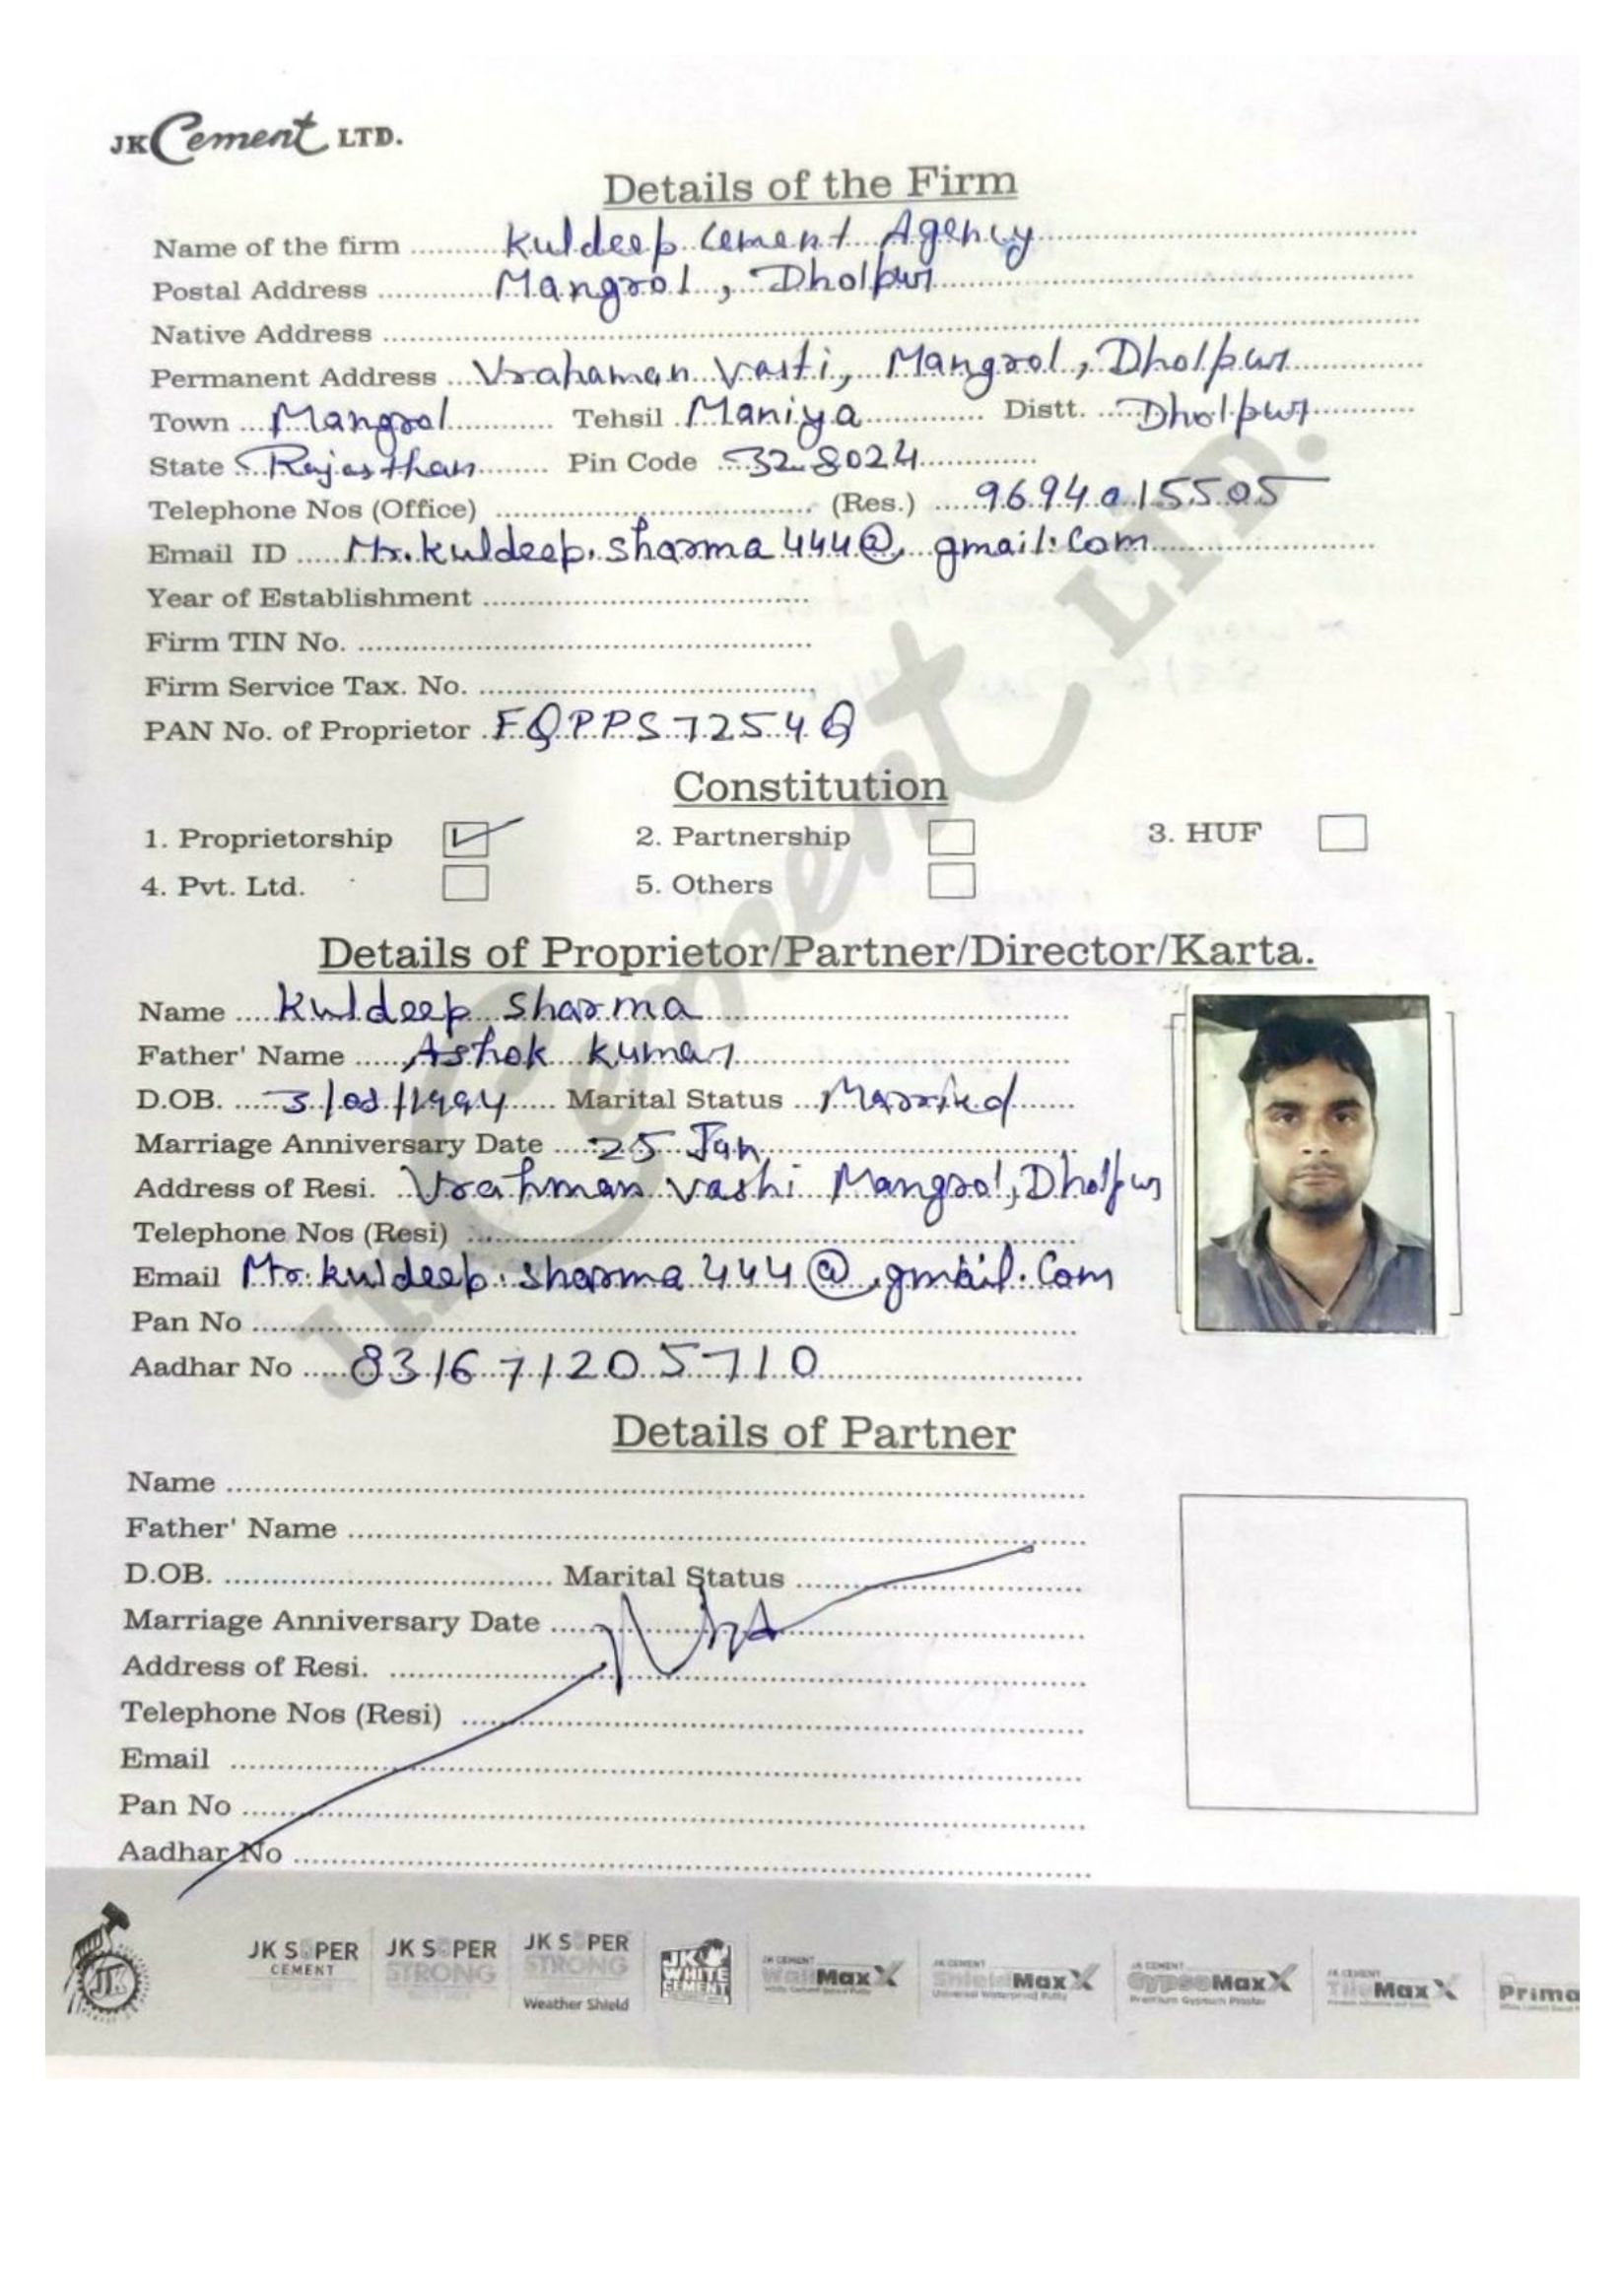 JK Cement LTD.
Details of the Firm
Name of the firm Kuldeep Cement Agency
Postal Address Mangrol, Dholpur
Native Address
Permanent Address Vrahaman Vasti, Mangrol, Dholpur
Town Mangrol Tehsil Maniya Distt. Dholpur
State Rajasthan Pin Code 328024
Telephone Nos (Office) (Res.) 9694015505
Email ID Mr.kuldeep.sharma444@gmail.com
Year of Establishment
Firm TIN No.
Firm Service Tax. No.
PAN No. of Proprietor FQPPS7254Q
Constitution
1. Proprietorship 2. Partnership 3. HUF
4. Pvt. Ltd. 5. Others
Details of Proprietor/Partner/Director/Karta.
Name Kuldeep Sharma
Father' Name Ashok Kumar
D.OB. 3/ /1994 Marital Status Married
Marriage Anniversary Date 25 Jan
Address of Resi. Vrahman Vashi Mangrol, Dholpur
Telephone Nos (Resi)
Email Mr.kuldeep.sharma444@gmail.com
Pan No
Aadhar No 831671205710
Details of Partner
Name
Father' Name
D.OB. Marital Status
Marriage Anniversary Date
Address of Resi.
Telephone Nos (Resi)
Email
Pan No
Aadhar No
JK SUPER CEMENT JK SUPER STRONG JK SUPER STRONG Weather Shield JK WHITE CEMENT JK CEMENT WallMaxX JK CEMENT ShieldMaxX JK CEMENT GypsoMaxX JK CEMENT TileMaxX Prima
JK Cement LTD.